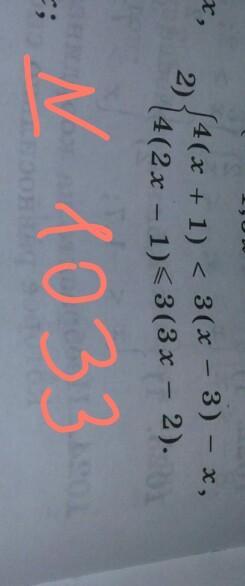 x,
2) { 4(x + 1) < 3(x − 3) − x,
4(2x − 1) ⩽ 3(3x − 2).
;
N 1033